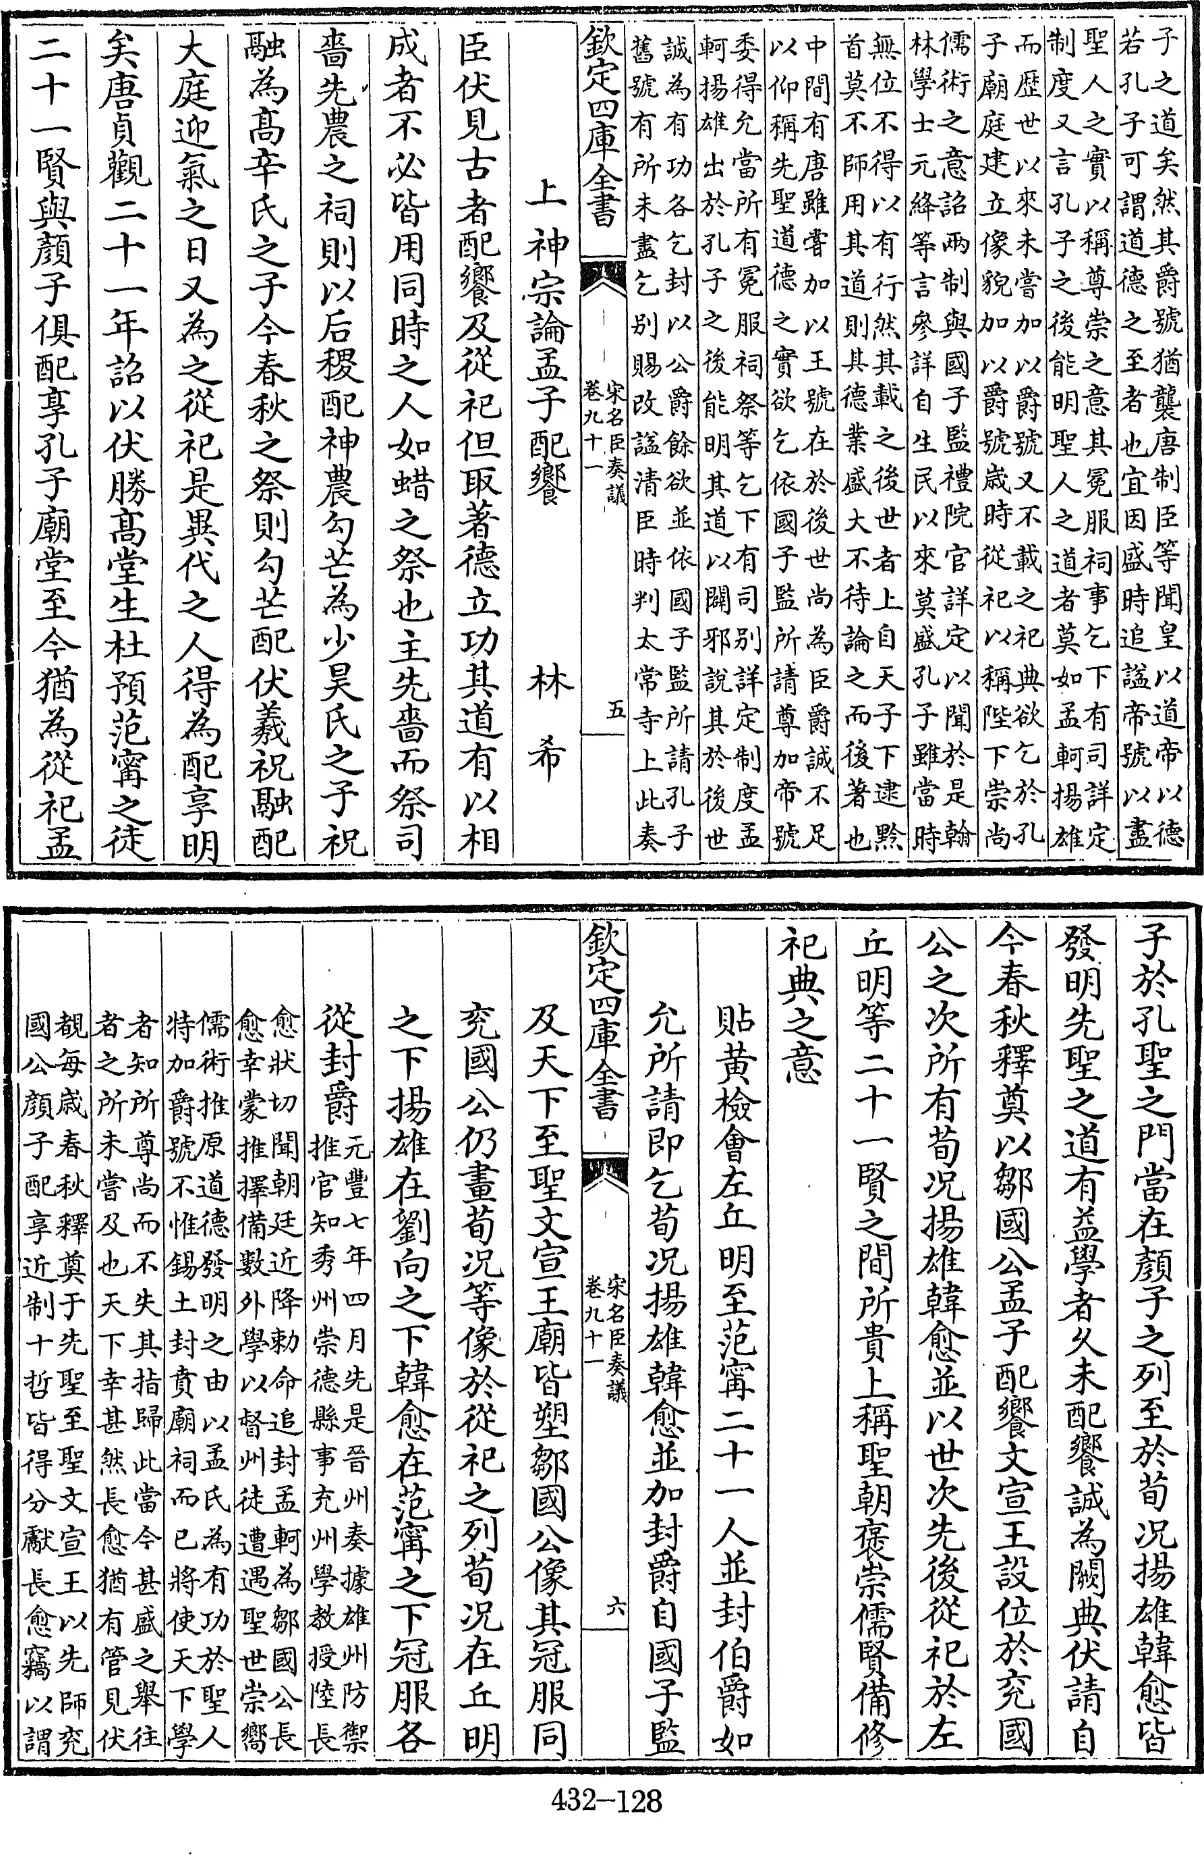 子之道矣然其爵號猶襲唐制臣等聞皇以道帝以德
若孔子可謂道德之至者也宜因盛時追謚帝號以盡
聖人之實以稱尊崇之意其冕服祠事乞下有司詳定
制度又言孔子之後能明聖人之道者莫如孟軻揚雄
而歴世以來未嘗加以爵號又不載之祀典欲乞於孔
子廟庭建立像貌加以爵號嵗時從祀以稱陛下崇尚
儒術之意詔兩制與國子監禮院官詳定以聞於是翰
林學士元絳等言參詳自生民以來莫盛孔子雖當時
無位不得以有行然其載之後世者上自天子下逮黔
首莫不師用其道則其德業盛大不待論之而後著也
中間有唐雖嘗加以王號在於後世尚為臣爵誠不足
以仰稱先聖道德之實欲乞依國子監所請尊加帝號
委得允當所有冕服祠祭等乞下有司别詳定制度孟
軻揚雄出於孔子之後能明其道以闢邪說其於後世
誠為有功各乞封以公爵餘欲並依國子監所請孔子
舊號有所未盡乞别賜改謚清臣時判太常寺上此奏
欽定四庫全書
宋名臣奏議
卷九十一
五
上神宗論孟子配饗
林希
臣伏見古者配饗及從祀但取著德立功其道有以相
成者不必皆用同時之人如蜡之祭也主先嗇而祭司
嗇先農之祠則以后稷配神農勾芒為少昊氏之子祝
融為髙辛氏之子今春秋之祭則勾芒配伏羲祝融配
大庭迎氣之日又為之從祀是異代之人得為配享明
矣唐貞觀二十一年詔以伏勝髙堂生杜預范甯之徒
二十一賢與顏子俱配享孔子廟堂至今猶為從祀孟
子於孔聖之門當在顏子之列至於荀况揚雄韓愈皆
發明先聖之道有益學者久未配饗誠為闕典伏請自
今春秋釋奠以鄒國公孟子配饗文宣王設位於兖國
公之次所有荀况揚雄韓愈並以世次先後從祀於左
丘明等二十一賢之間所貴上稱聖朝褒崇儒賢備修
祀典之意
貼黄檢會左丘明至范甯二十一人並封伯爵如
允所請即乞荀况揚雄韓愈並加封爵自國子監
欽定四庫全書
宋名臣奏議
卷九十一
六
及天下至聖文宣王廟皆塑鄒國公像其冠服同
兖國公仍畫荀况等像於從祀之列荀况在丘明
之下揚雄在劉向之下韓愈在范甯之下冠服各
從封爵元豐七年四月先是晉州奏據雄州防禦
推官知秀州崇德縣事充州學教授陸長
愈狀切聞朝廷近降勅命追封孟軻為鄒國公長
愈幸蒙推擇備數外學以督州徒遭遇聖世崇嚮
儒術推原道德發明之由以孟氏為有功於聖人
特加爵號不惟錫土封賁廟祠而已將使天下學
者知所尊尚而不失其指歸此當今甚盛之舉往
者之所未嘗及也天下幸甚然長愈猶有管見伏
覩每嵗春秋釋奠于先聖至聖文宣王以先師兖
國公顏子配享近制十哲皆得分獻長愈竊以謂
432-128